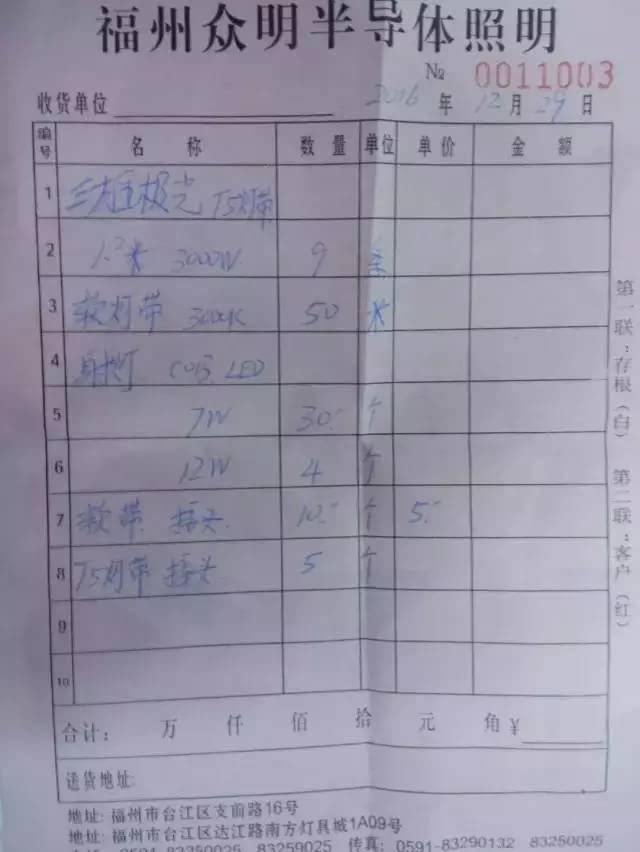 福州众明半导体照明
№ 0011003
收货单位 2016 年 12 月 29 日
编号 名称 数量 单位 单价 金额
1 极光 T5灯带
2 1.2米 3000W 9
3 软灯带 3000K 50 米
4 射灯 COB LED
5 7W 30.- 个
6 12W 4 个
7 软带 接头 10.- 个 5.-
8 T5灯带 接头 5 个
9
10
合计: 万 仟 佰 拾 元 角 ¥
送货地址:
地址: 福州市台江区支前路16号
地址: 福州市台江区达江路南方灯具城1A09号
电话: 0591-83259025 传真: 0591-83290132 83250025
第一联:存根(白) 第二联:客户(红)